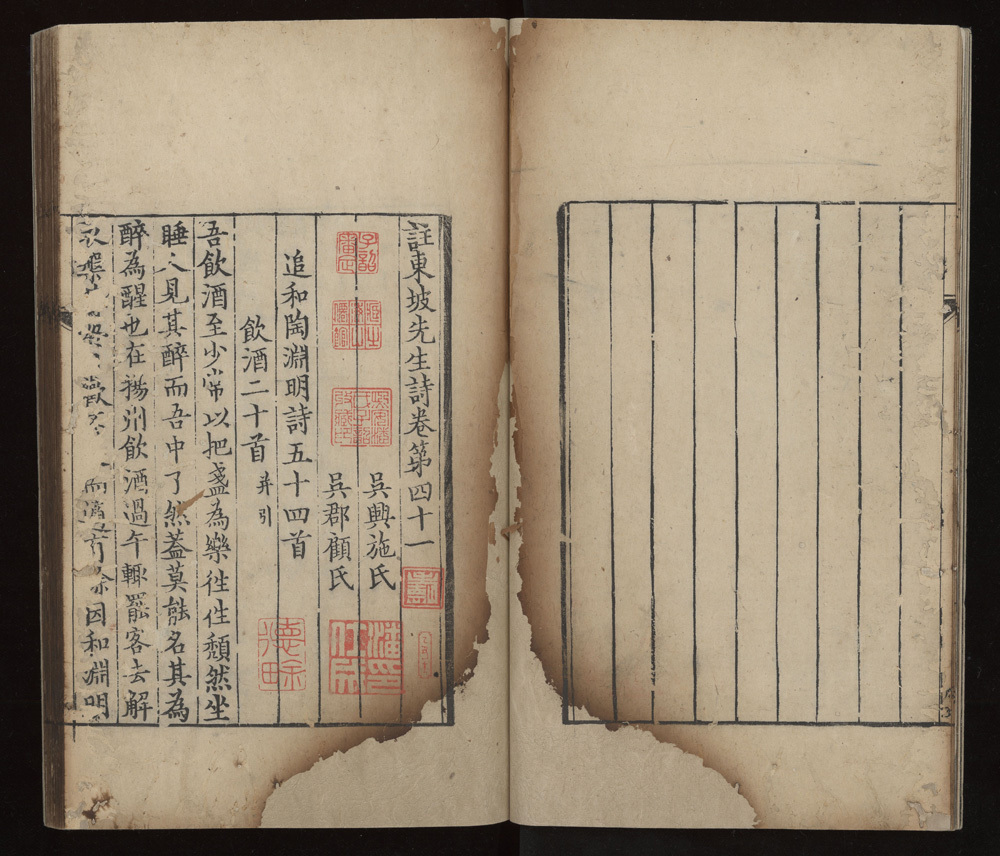 註東坡先生詩卷第四十一
吳興施氏
吳郡顧氏
追和陶淵明詩五十四首
飲酒二十首并引
吾飲酒至少常以把盞為樂往往頹然坐
睡人見其醉而吾中了然蓋莫能名其為
醉為醒也在揚州飲酒過午輒罷客去解
衣槃 歡不 而適有餘因和淵明
德畬